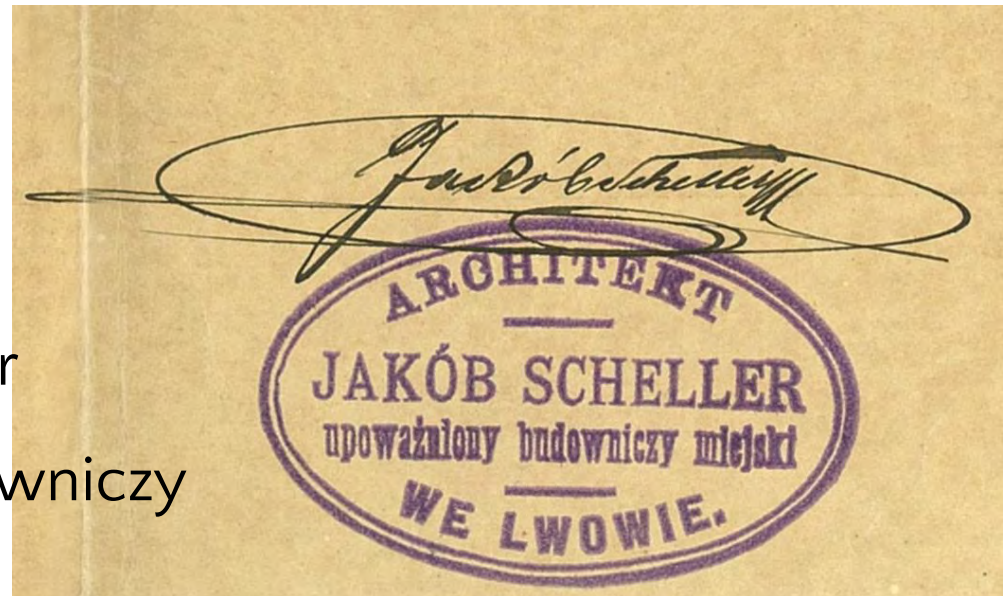 Jakób Scheller
ARCHITEKT
JAKÓB SCHELLER
upoważniony budowniczy miejski
WE LWOWIE.
r
wniczy